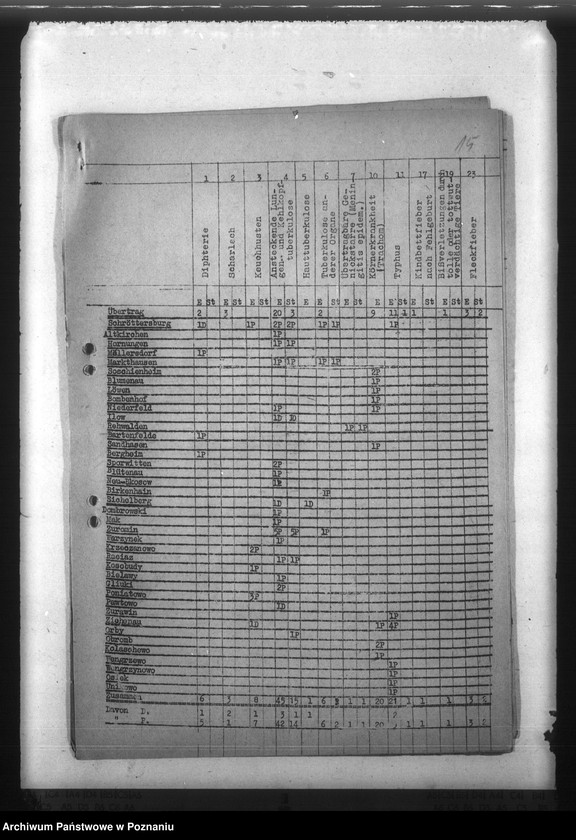 15
1 2 3 4 5 6 7 10 11 17 19 23
Diphterie
Scharlach
Keuchhusten
Ansteckende Lun-
gen- und Kehlkopf-
tuberkulose
Hauttuberkulose
Tuberkulose an-
derer Organe
Übertragbare Ge-
nickstarre (Menin
gitis epidem.)
Körnerkrankheit
(Trachom)
Typhus
Kindbettfieber
nach Fehlgeburt
Bißverletzungen durch
tolle oder tollwut-
verdächtige Tiere
Fleckfieber
E St E St E St E St E St E St E St E E St E St E E St
Übertrag 2 3 20 3 2 9 11 1 1 1 3 2
Schröttersburg 1D 1P 2P 2P 1P 1P 1P
Altkirchen 1P
Hornungen 1P 1P
Müllersdorf 1P
Markthausen 1P 1P 1P 1P
Soschienheim 2P
Blumenau 1P
Löwen 1P
Bombenhof 1P
Niederfeld 1P 1P
Ilow 1D 1D
Rehwalden 1P 1P
Bartenfelde 1P
Sandhasen 1P
Bergheim 1P
Sporwitten 2P
Blütenau 1P
Neu-Ekosow 1P
Birkenhain 1P
Sichelberg 1D 1D
Dombrowski 1P
Mak 1P
Zuromin 5P 5P 1P
Warzynek 1P
Krzeczanowo 2P
Rocias 1P 1P
Kosobudy 1P
Bielawy 1P
Gliuki 2P
Poniatowo 3P
Pawlowo 1D
Zurawin 1P
Zichenau 1D 1P 4P
Orby 1P
Obromb 2P
Kolaschowo 1P
Wengrzewo 1P
Wengrzynowo 1P
Osiek 1P
1P
Zusammen 6 3 8 45 15 1 6 2 1 1 20 21 1 1 1 3 2
Davon D. 1 2 1 3 1 1 2
" P. 5 1 7 42 14 6 2 1 1 20 1 1 1 3 2
Archiwum Państwowe w Poznaniu
szukajwarchiwach.gov.pl